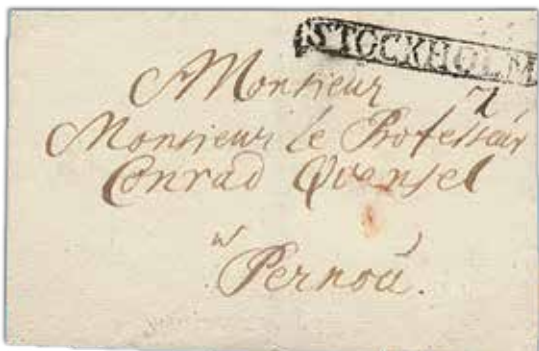 STOCKHOLM
Monsieur
Monsieur le Professeur
Conrad Quensel
Pernoù.